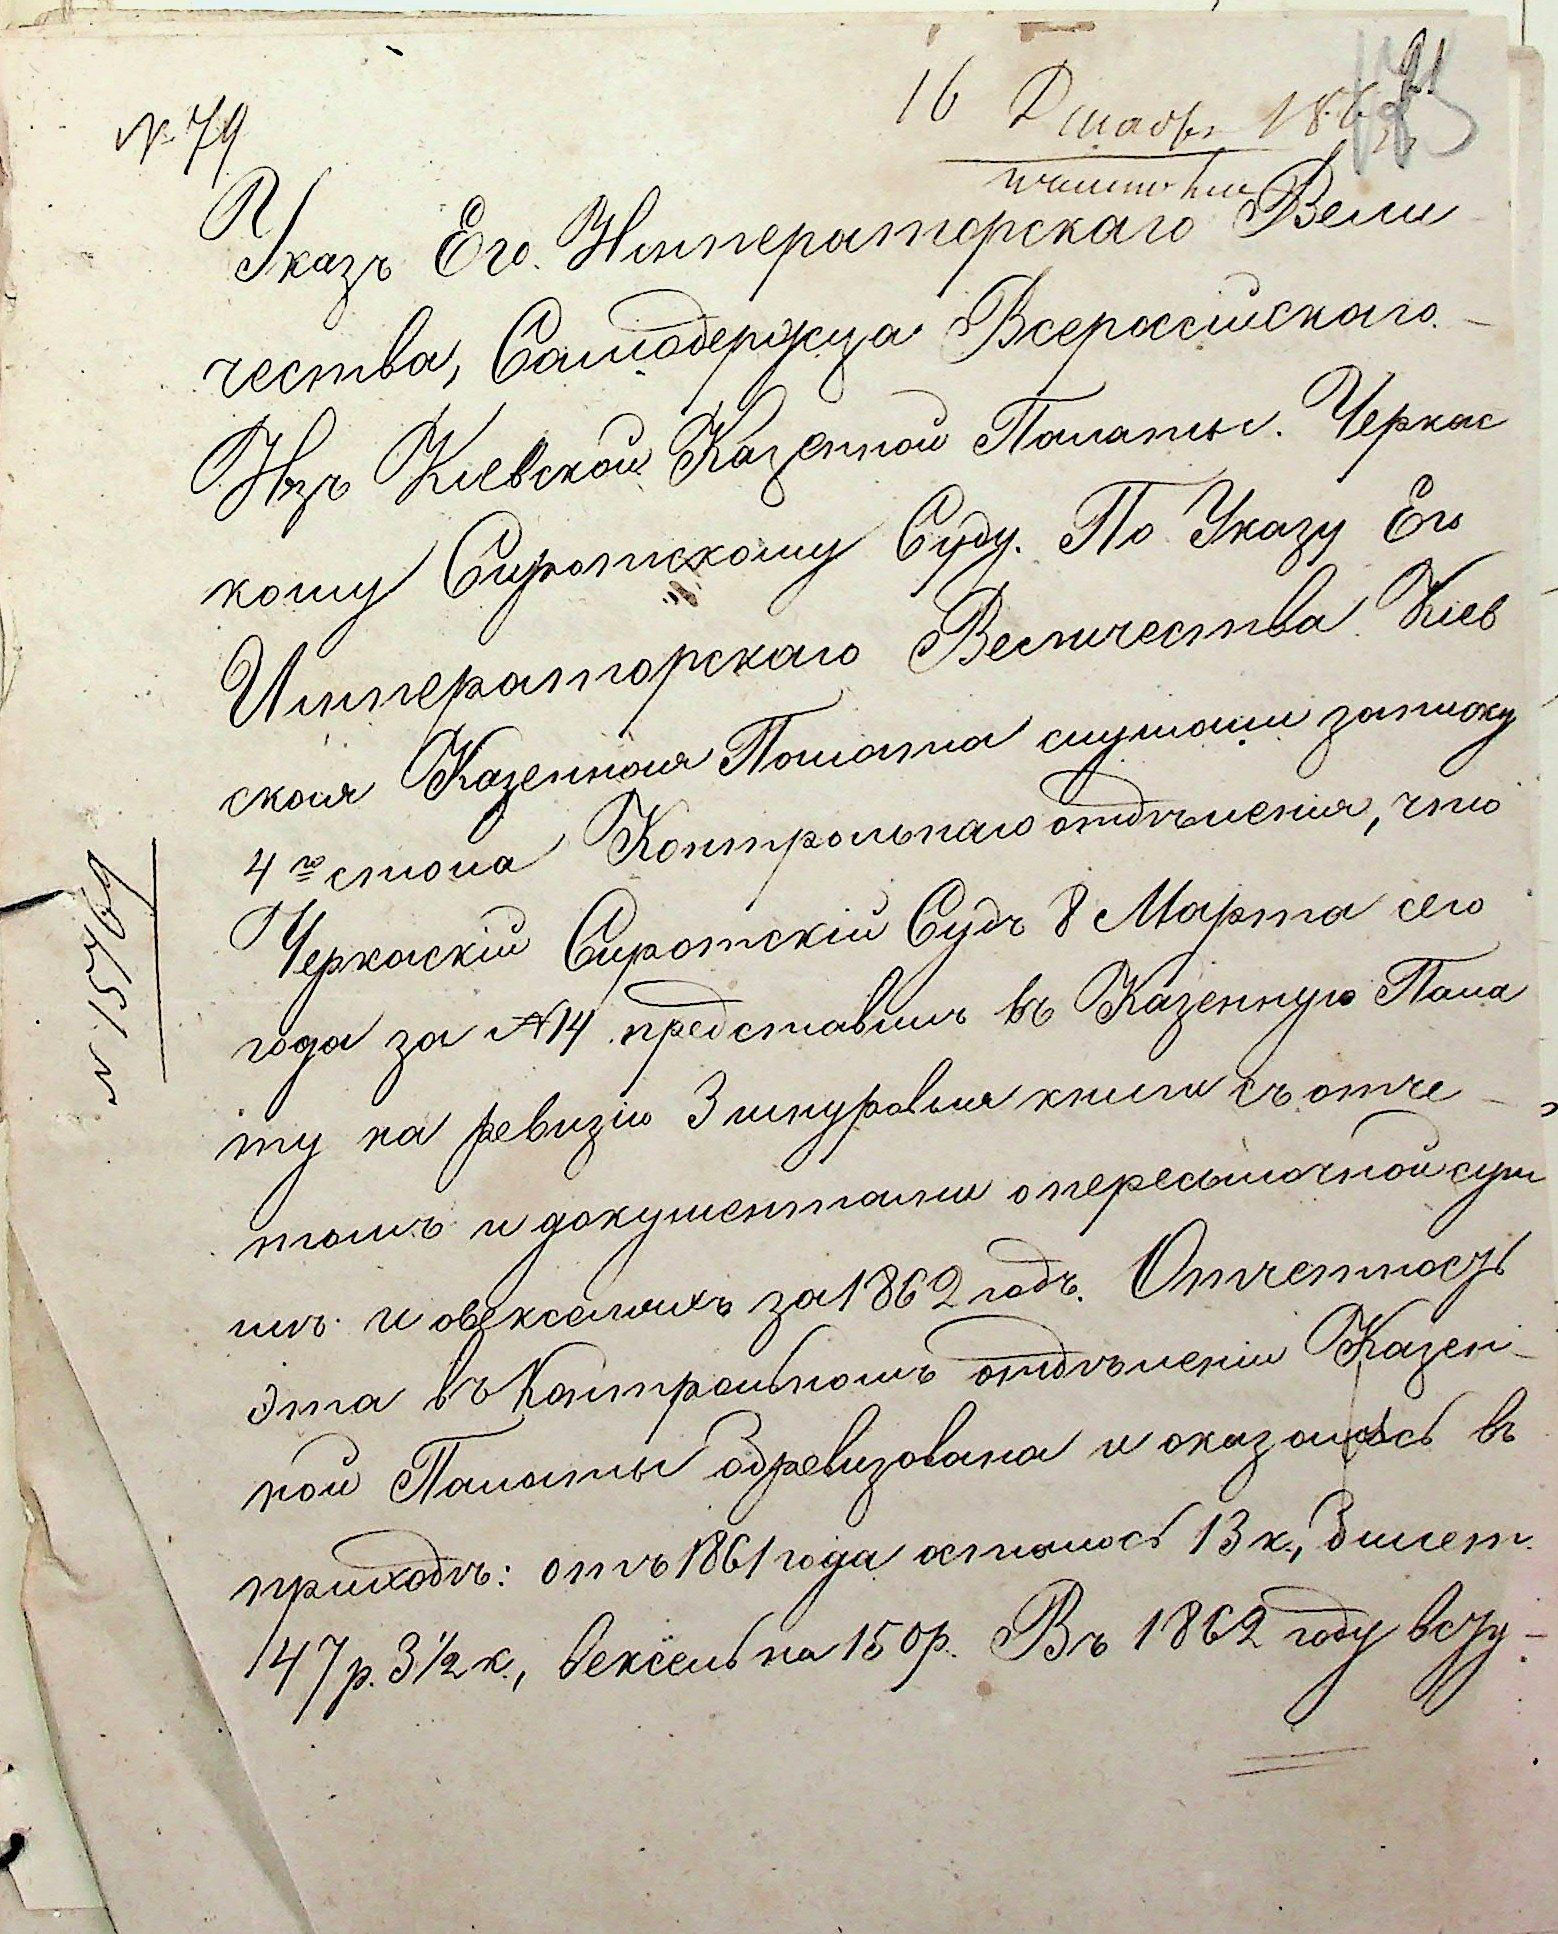 № 79
16 Декабря 186
Указъ Его Императорскаго Вели
чества, Самодержца Всероссійскаго.
Изъ Кіевской Казенной Палаты. Черкас
кому Сиротскому Суду. По Указу Его
Императорскаго Величества Кіев
ская Казенная Палата слушали записку
4го стола Контрольнаго отдѣленія, что
Черкаскій Сиротскій Судъ 8 Марта сего
года за №14 представилъ въ Казенную Пала
ту на ревизію 3 шнуровыя книги съ отче-
томъ и документами о пересылочной сум
мѣ и о векселяхъ за 1862 годъ. Отчетность
эта въ Контрольномъ отдѣленіи Казен-
ной Палаты обревизована и оказалось въ
приходѣ: отъ 1861 года осталось 13 к., билет.
47 р. 3½ к., вексель на 150 р. Въ 1862 году всту-
№ 15769